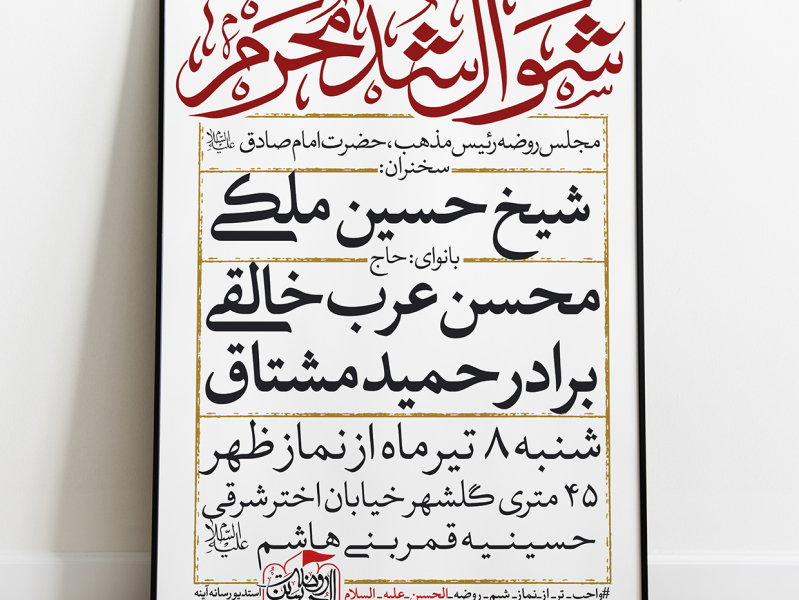 شوال شد محرم
مجلس روضه رئیس مذهب، حضرت امام صادق علیه‌السلام
سخنران:
شیخ حسین ملکی
بانوای: حاج
محسن عرب خالقی
برادر حمید مشتاق
شنبه ۸ تیر ماه از نماز ظهر
۴۵ متری گلشهر خیابان اختر شرقی
حسینیه قمر بنی هاشم علیه‌السلام
#واجب_تر_از_نماز_شبم_روضه_الحسین_علیه_السلام
استدیو رسانه آینه